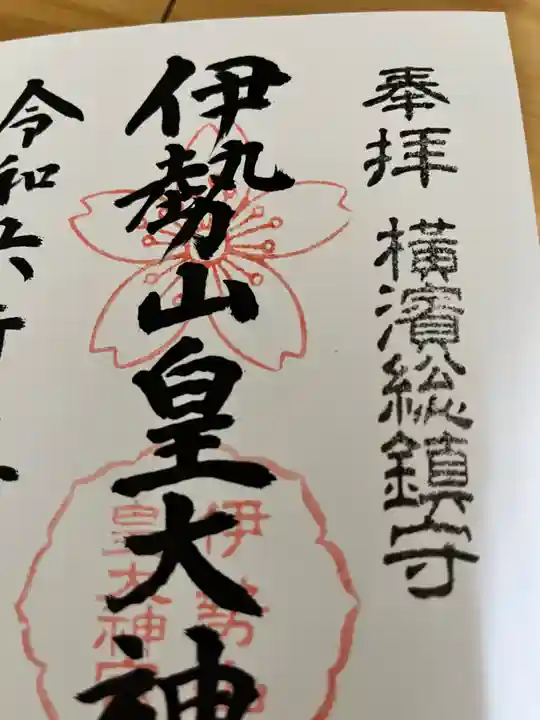 奉拝
横濱総鎮守
伊勢山皇大神
令和六年
伊勢山
皇大神宮